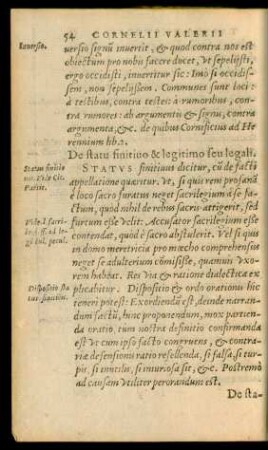 54 CORNELII VALERII
Inuersio.
uersio signū inuertit, & quod contra nos est
obiectum pro nobis facere docet, vt sepelijsti,
ergo occidisti, inuertitur sic: Imò si occidis-
sem, non sepelijssem. Communes sunt loci:
à testibus, contra testes: à rumoribus, con-
tra rumores: ab argumentis & signis, contra
argumenta, &c. de quibus Cornificius ad He-
rennium lib. 2.
De statu finitiuo & legitimo seu legali.
Status finitiuus
STATVS finitiuus dicitur, cū de facti
appellatione quæritur, vt, si qui rem profanā
è loco sacro furatus neget sacrilegium à se fa-
ctum, quod nihil de rebus sacris attigerit, sed
furtum esse velit: Accusator sacrilegium esse
contendat, quod è sacro abstulerit. Vel si quis
in domo meretricia pro mœcho prehensus
neget se adulterium cōmisisse, quamuis vxo-
rem habeat. Res via & ratione dialectica ex-
plicabitur. Dispositio & ordo orationis hic
Dispositio sta
teneri potest: Exordiendū est, deinde narran-
dum factū, hinc proponendum, mox partien-
da oratio, tum nostra definitio confirmanda
est vt cum ipso facto congruens, & contra-
riæ defensionis ratio refellenda, si falsa, si tur-
pis, si inutilis, si iniuriosa sit, &c. Postremò
ad causam vtiliter perorandum est.
De sta-